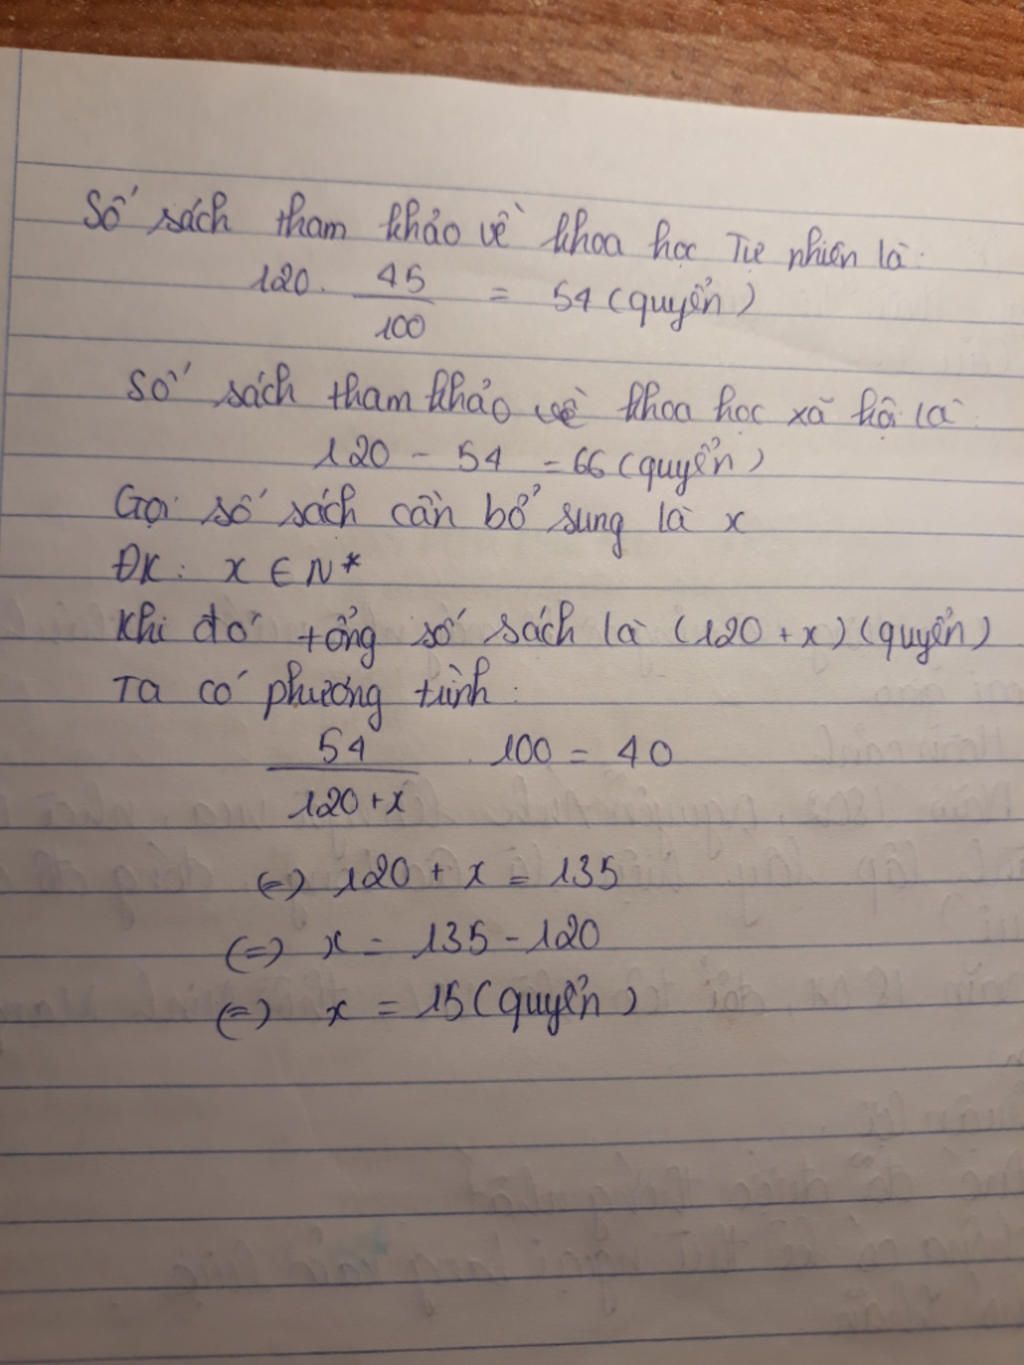 Số sách tham khảo về khoa học Tự nhiên là:
120. 45/100 = 54 (quyển)
Số sách tham khảo về khoa học xã hội là
120 - 54 = 66 (quyển)
Gọi số sách cần bổ sung là x
ĐK: x ∈ N*
Khi đó tổng số sách là (120 + x) (quyển)
Ta có phương trình:
54/(120+x) . 100 = 40
(=) 120 + x = 135
(=) x = 135 - 120
(=) x = 15 (quyển)